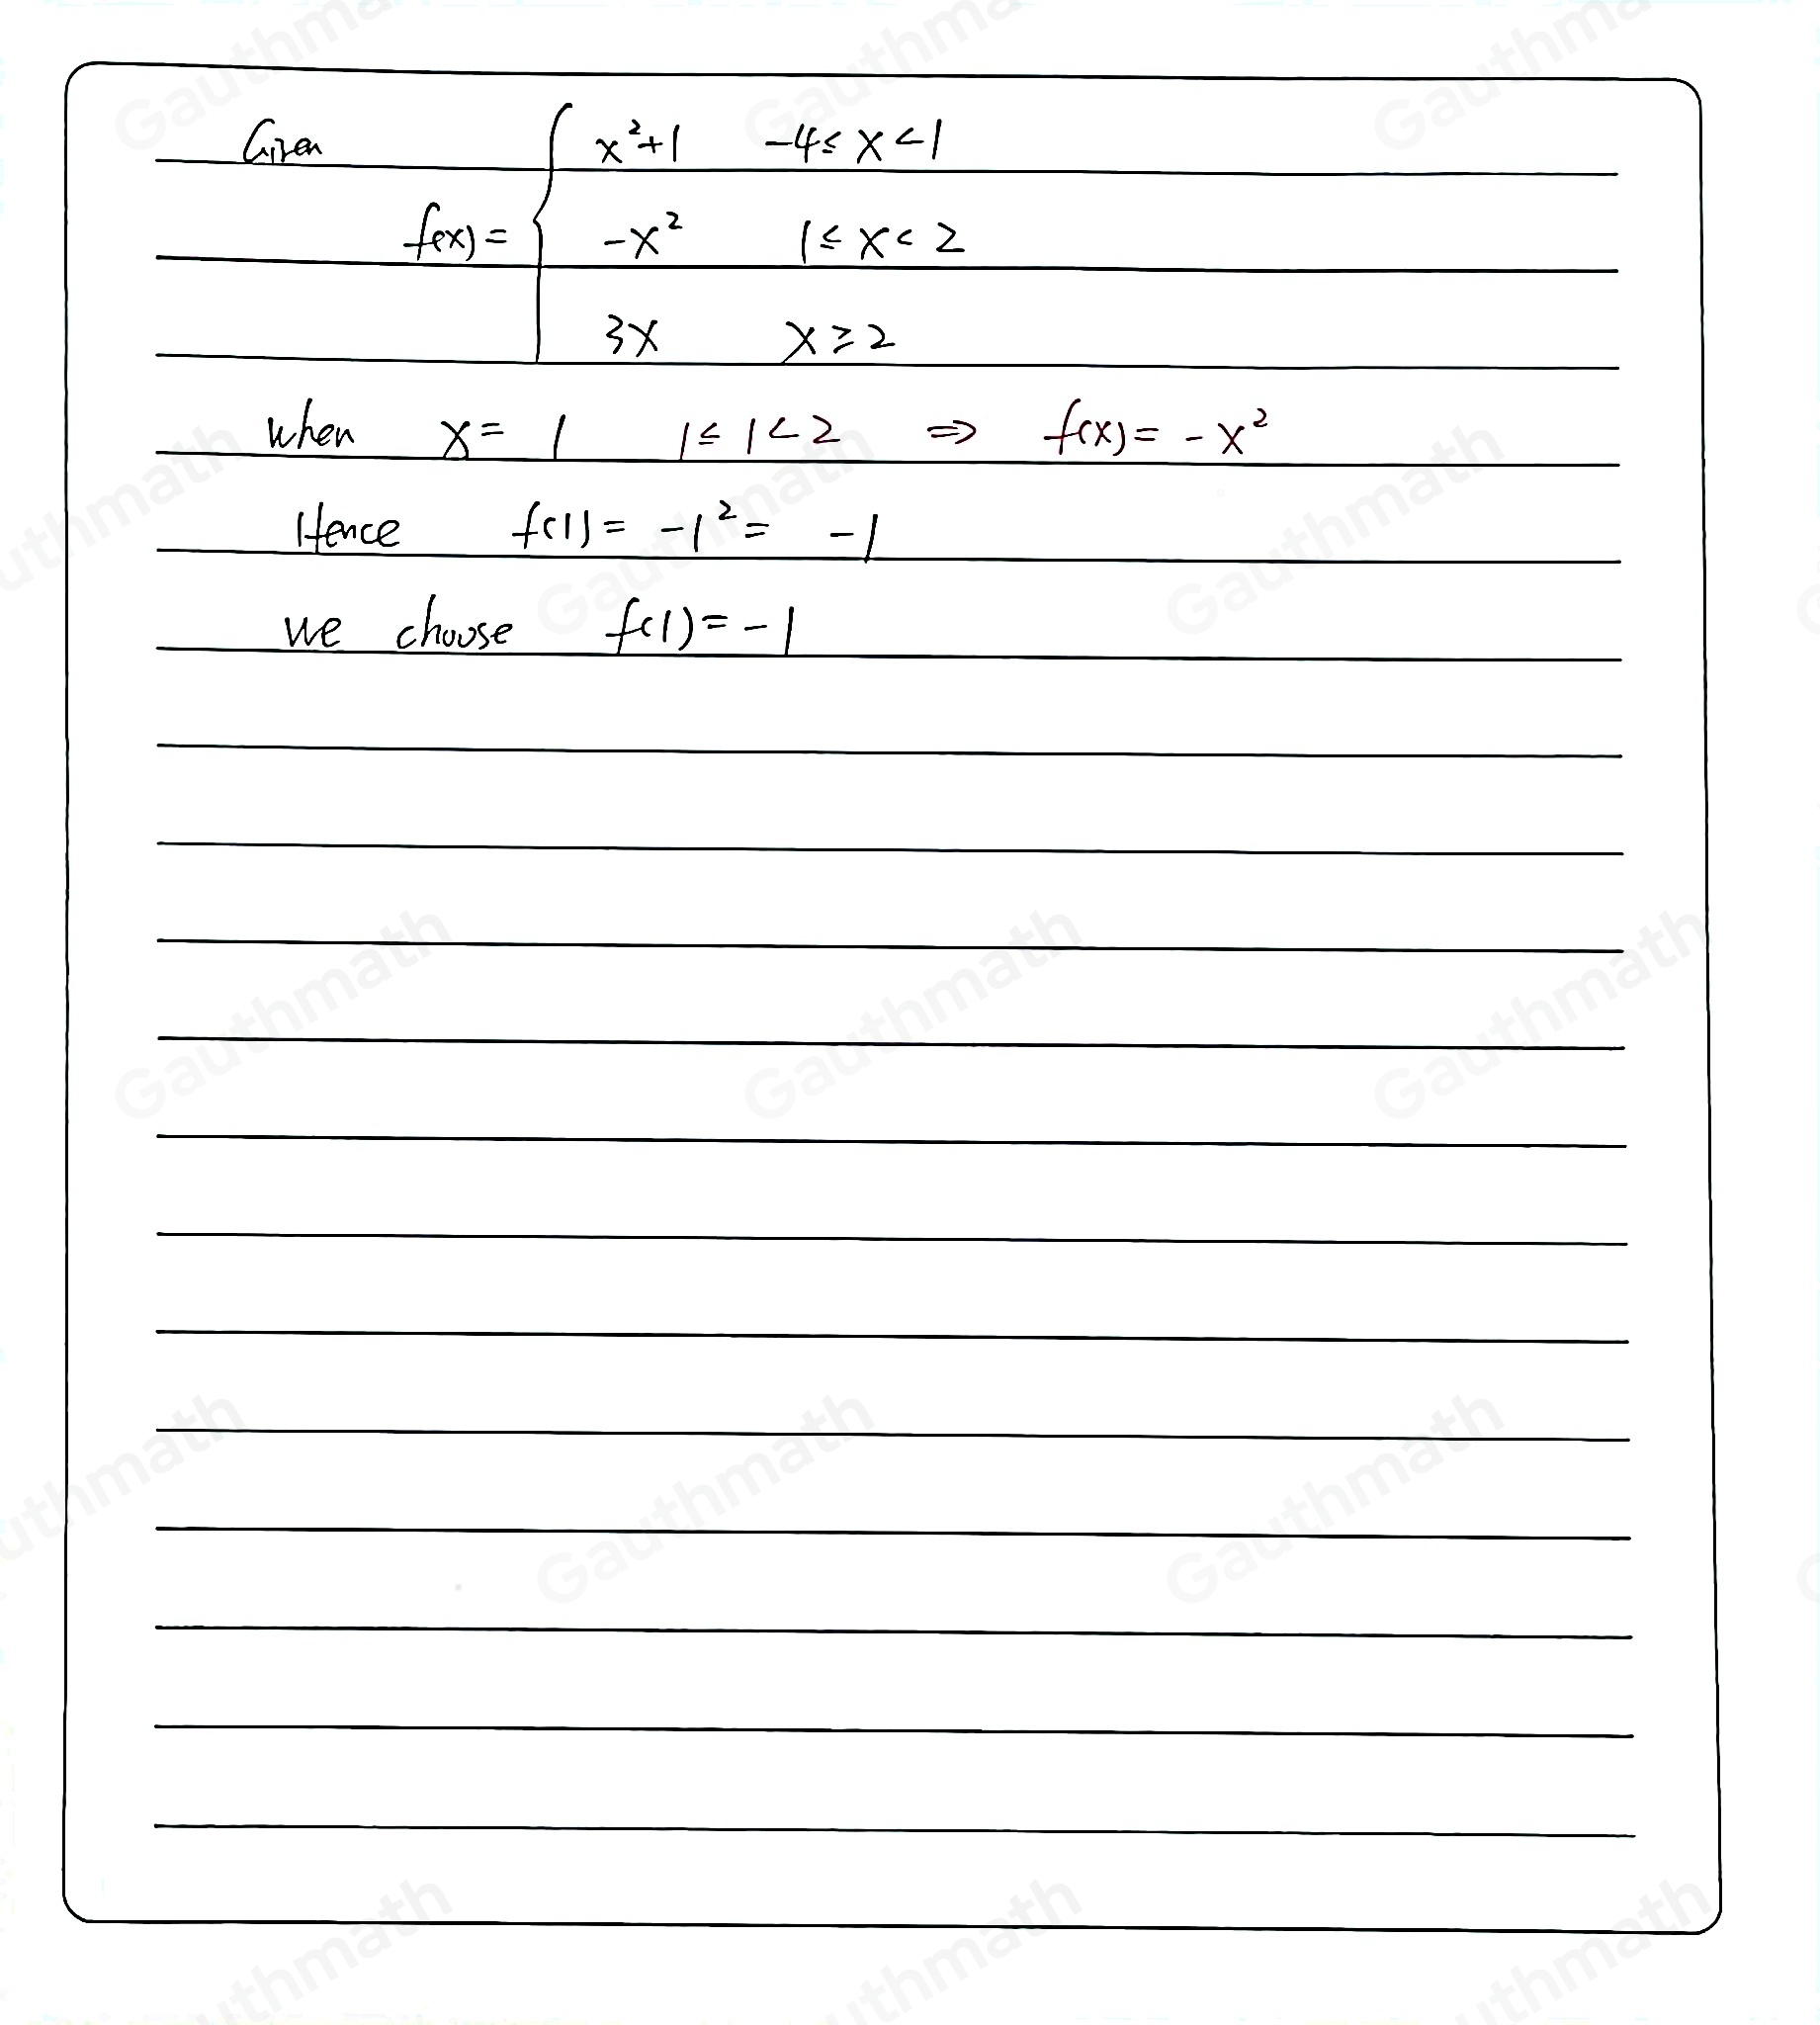 Given x²+1 -4≤ x <1
f(x)= { -x² 1≤ x < 2
3x x ≥ 2
when x = 1 1≤ 1 < 2 ⇒ f(x) = -x²
Hence f(1) = -1² = -1
we choose f(1) = -1